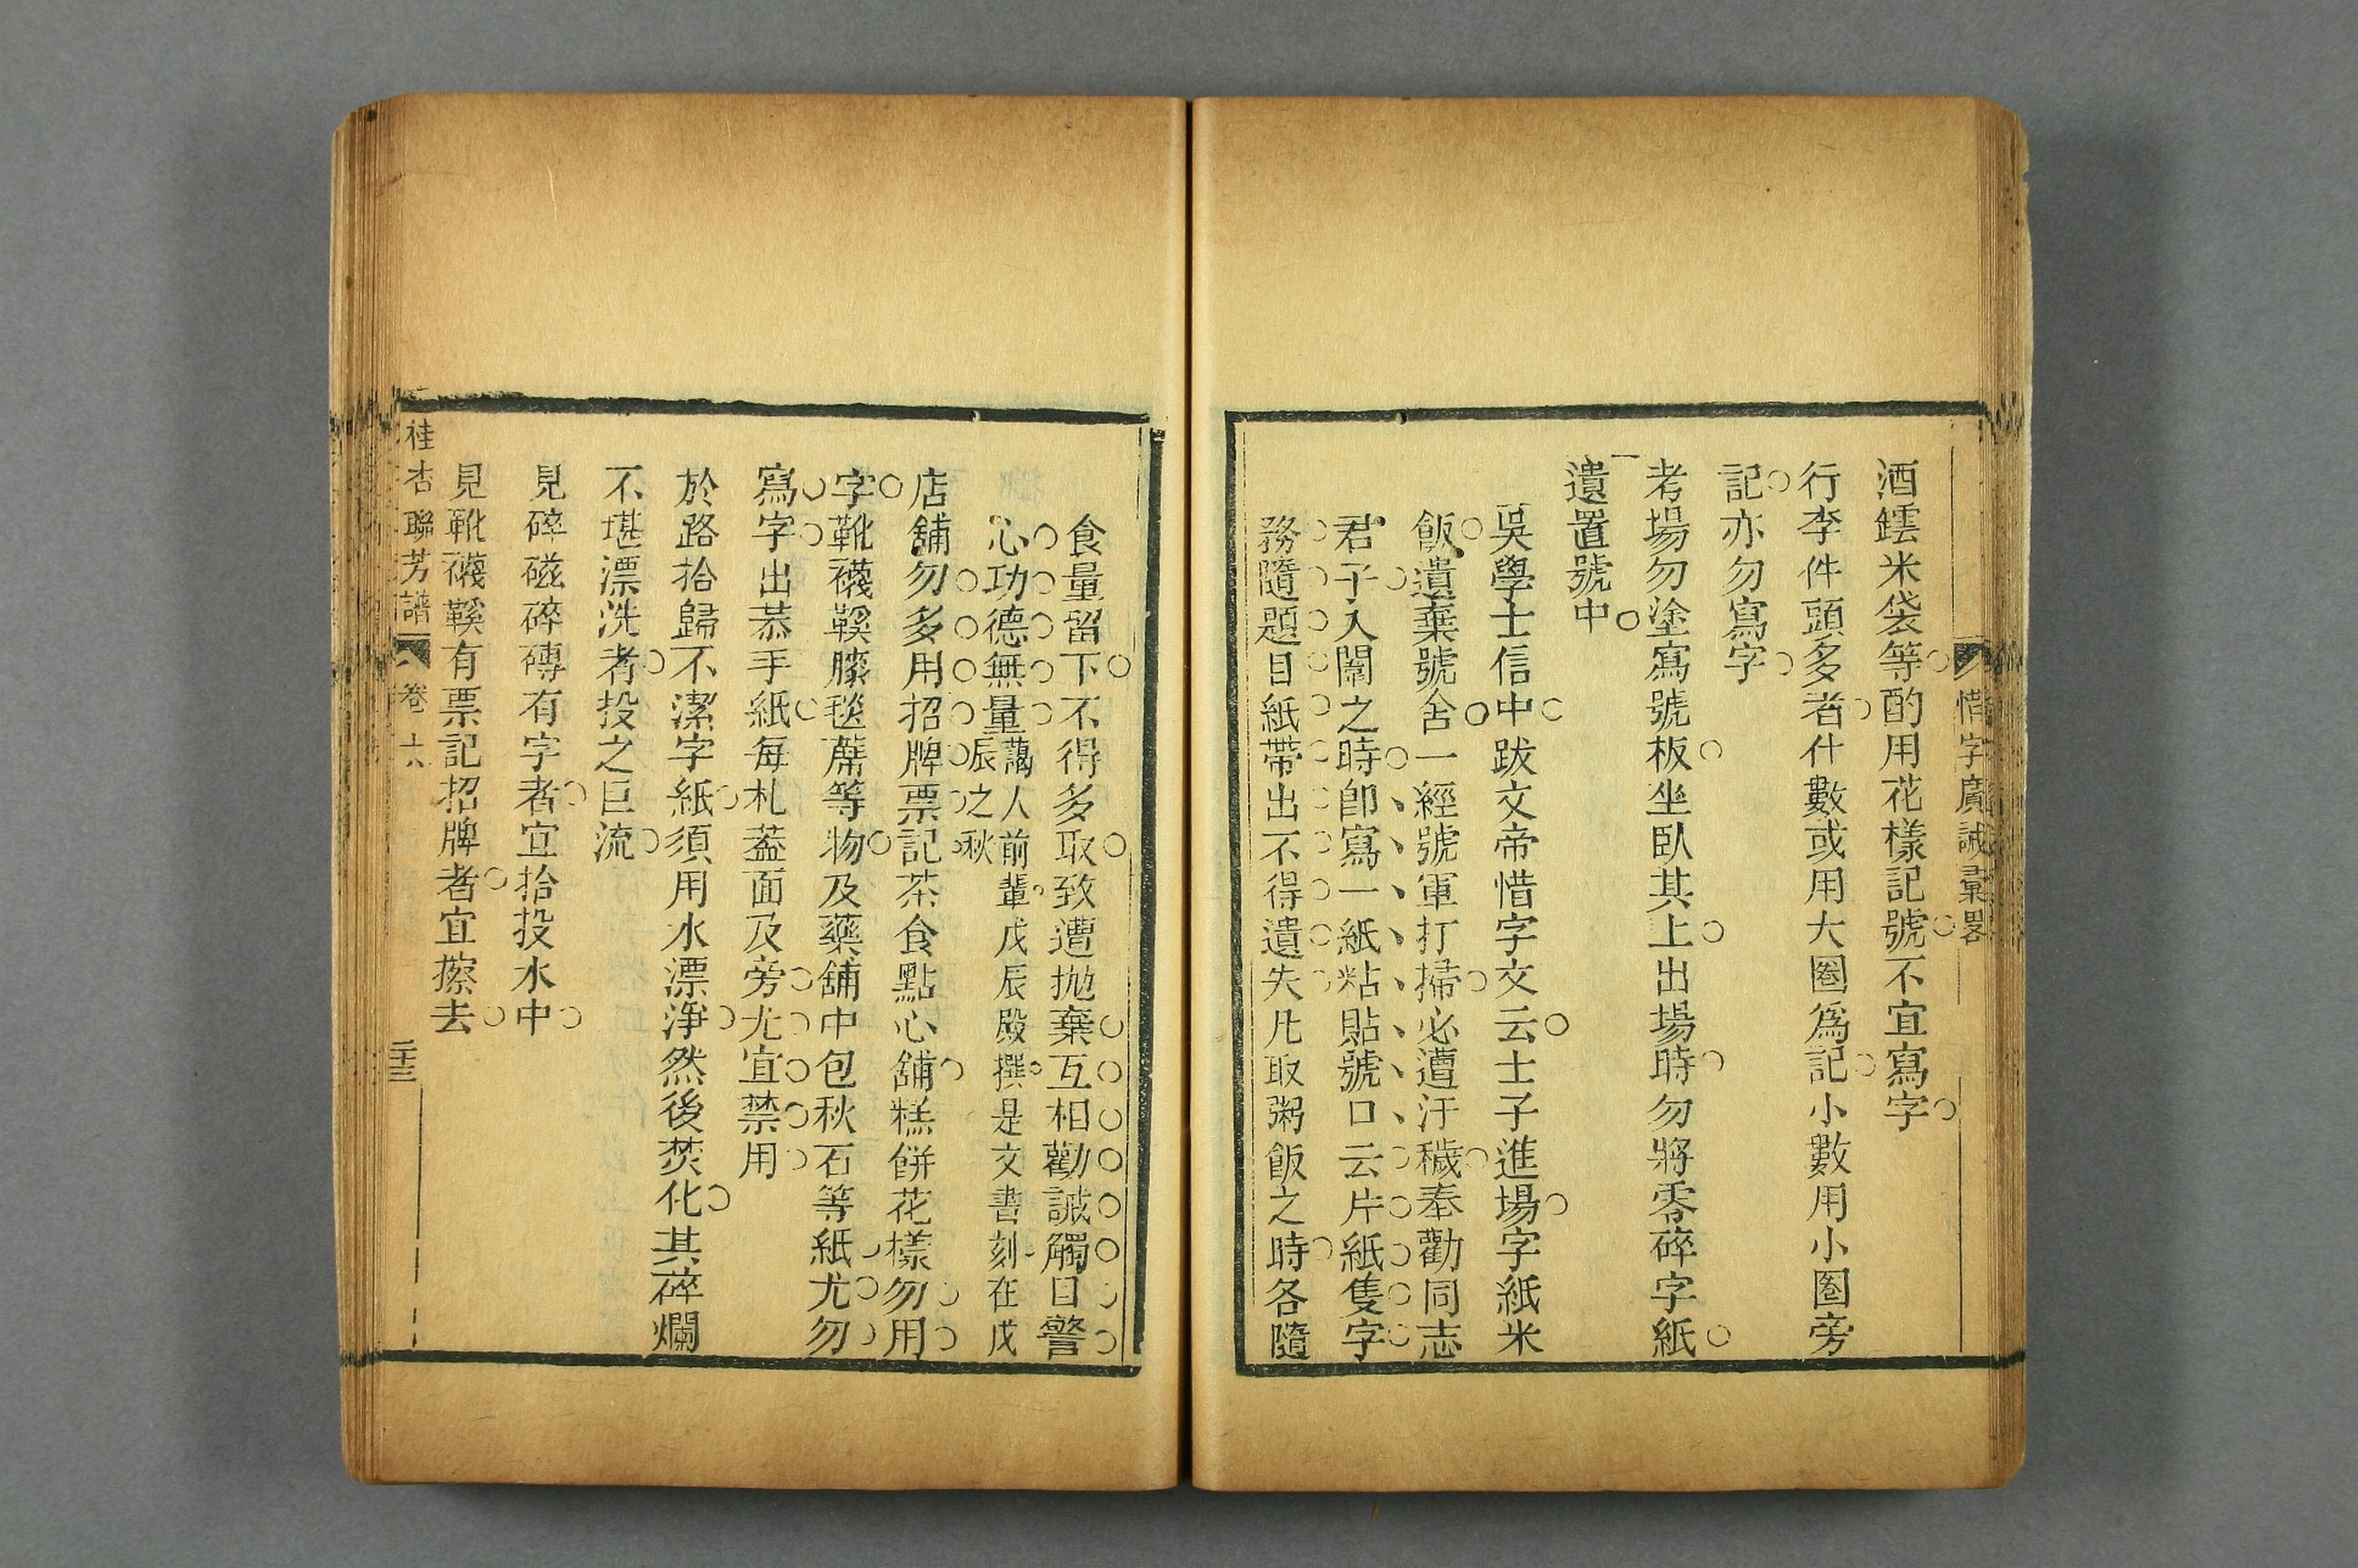 惜字廣誡彙畧
酒鐔米袋等酌用花樣記號不宜寫字
行李件頭多者什數或用大圈爲記小數用小圈旁
記亦勿寫字
考場勿塗寫號板坐臥其上出場時勿將零碎字紙
遺置號中
吳學士信中跋文帝惜字文云士子進場字紙米
飯遺棄號舍一經號軍打掃必遭汙穢奉勸同志
君子入闈之時卽寫一紙粘貼號口云片紙隻字
務隨題目紙帶出不得遺失凡取粥飯之時各隨
食量留下不得多取致遭拋棄互相勸誡觸目警
心功德無量藹人前輩戊辰殿撰是文書刻在戊
辰之秋
店舖勿多用招牌票記茶食點心舖糕餅花樣勿用
字靴襪鞵縢毯蓆等物及藥舖中包秋石等紙尤勿
寫字出恭手紙每札蓋面及旁尤宜禁用
於路拾歸不潔字紙須用水漂淨然後焚化其碎爛
不堪漂洗者投之巨流
見碎磁碎磚有字者宜拾投水中
見靴襪鞵有票記招牌者宜擦去
桂杏聯芳譜
卷六
二十三